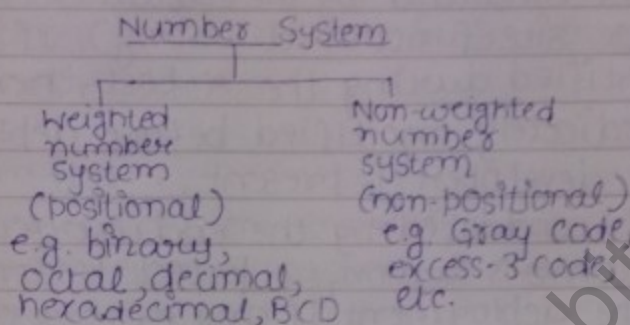 Number System
Weighted
number
system
(positional)
e.g. binary,
octal, decimal,
hexadecimal, BCD
Non-weighted
number
system
(non-positional)
e.g. Gray code,
excess-3 code,
etc.